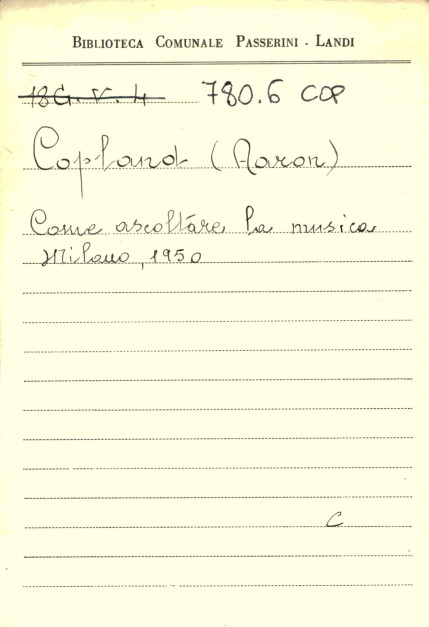 BIBLIOTECA COMUNALE PASSERINI - LANDI
18G. V. 4 780.6 COP
Copland (Aaron)
Come ascoltare la musica
Milano, 1950
C